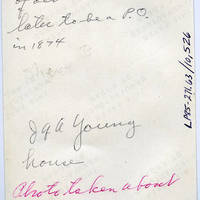 later to be a P.O.
in 1874
J Q A Young
house
Photo taken about
LP85-271.63/10,526